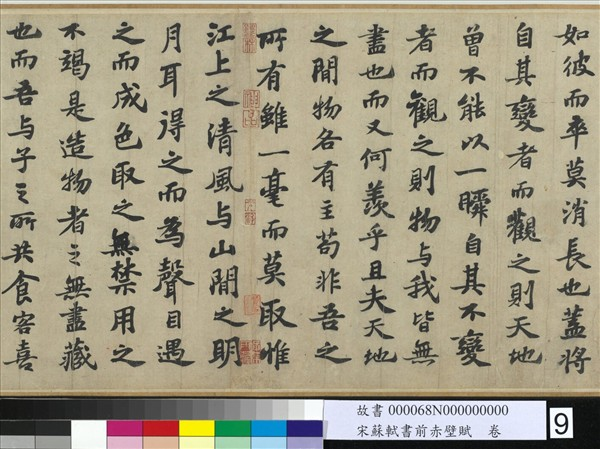 如彼而卒莫消長也蓋將
自其變者而觀之則天地
曾不能以一瞬自其不變
者而觀之則物與我皆無
盡也而又何羨乎且夫天地
之間物各有主苟非吾之
所有雖一毫而莫取惟
江上之清風与山間之明
月耳得之而為聲目遇
之而成色取之無禁用之
不竭是造物者之無盡藏
也而吾与子之所共食客喜
故書 000068N000000000
宋蘇軾書前赤壁賦 卷
9